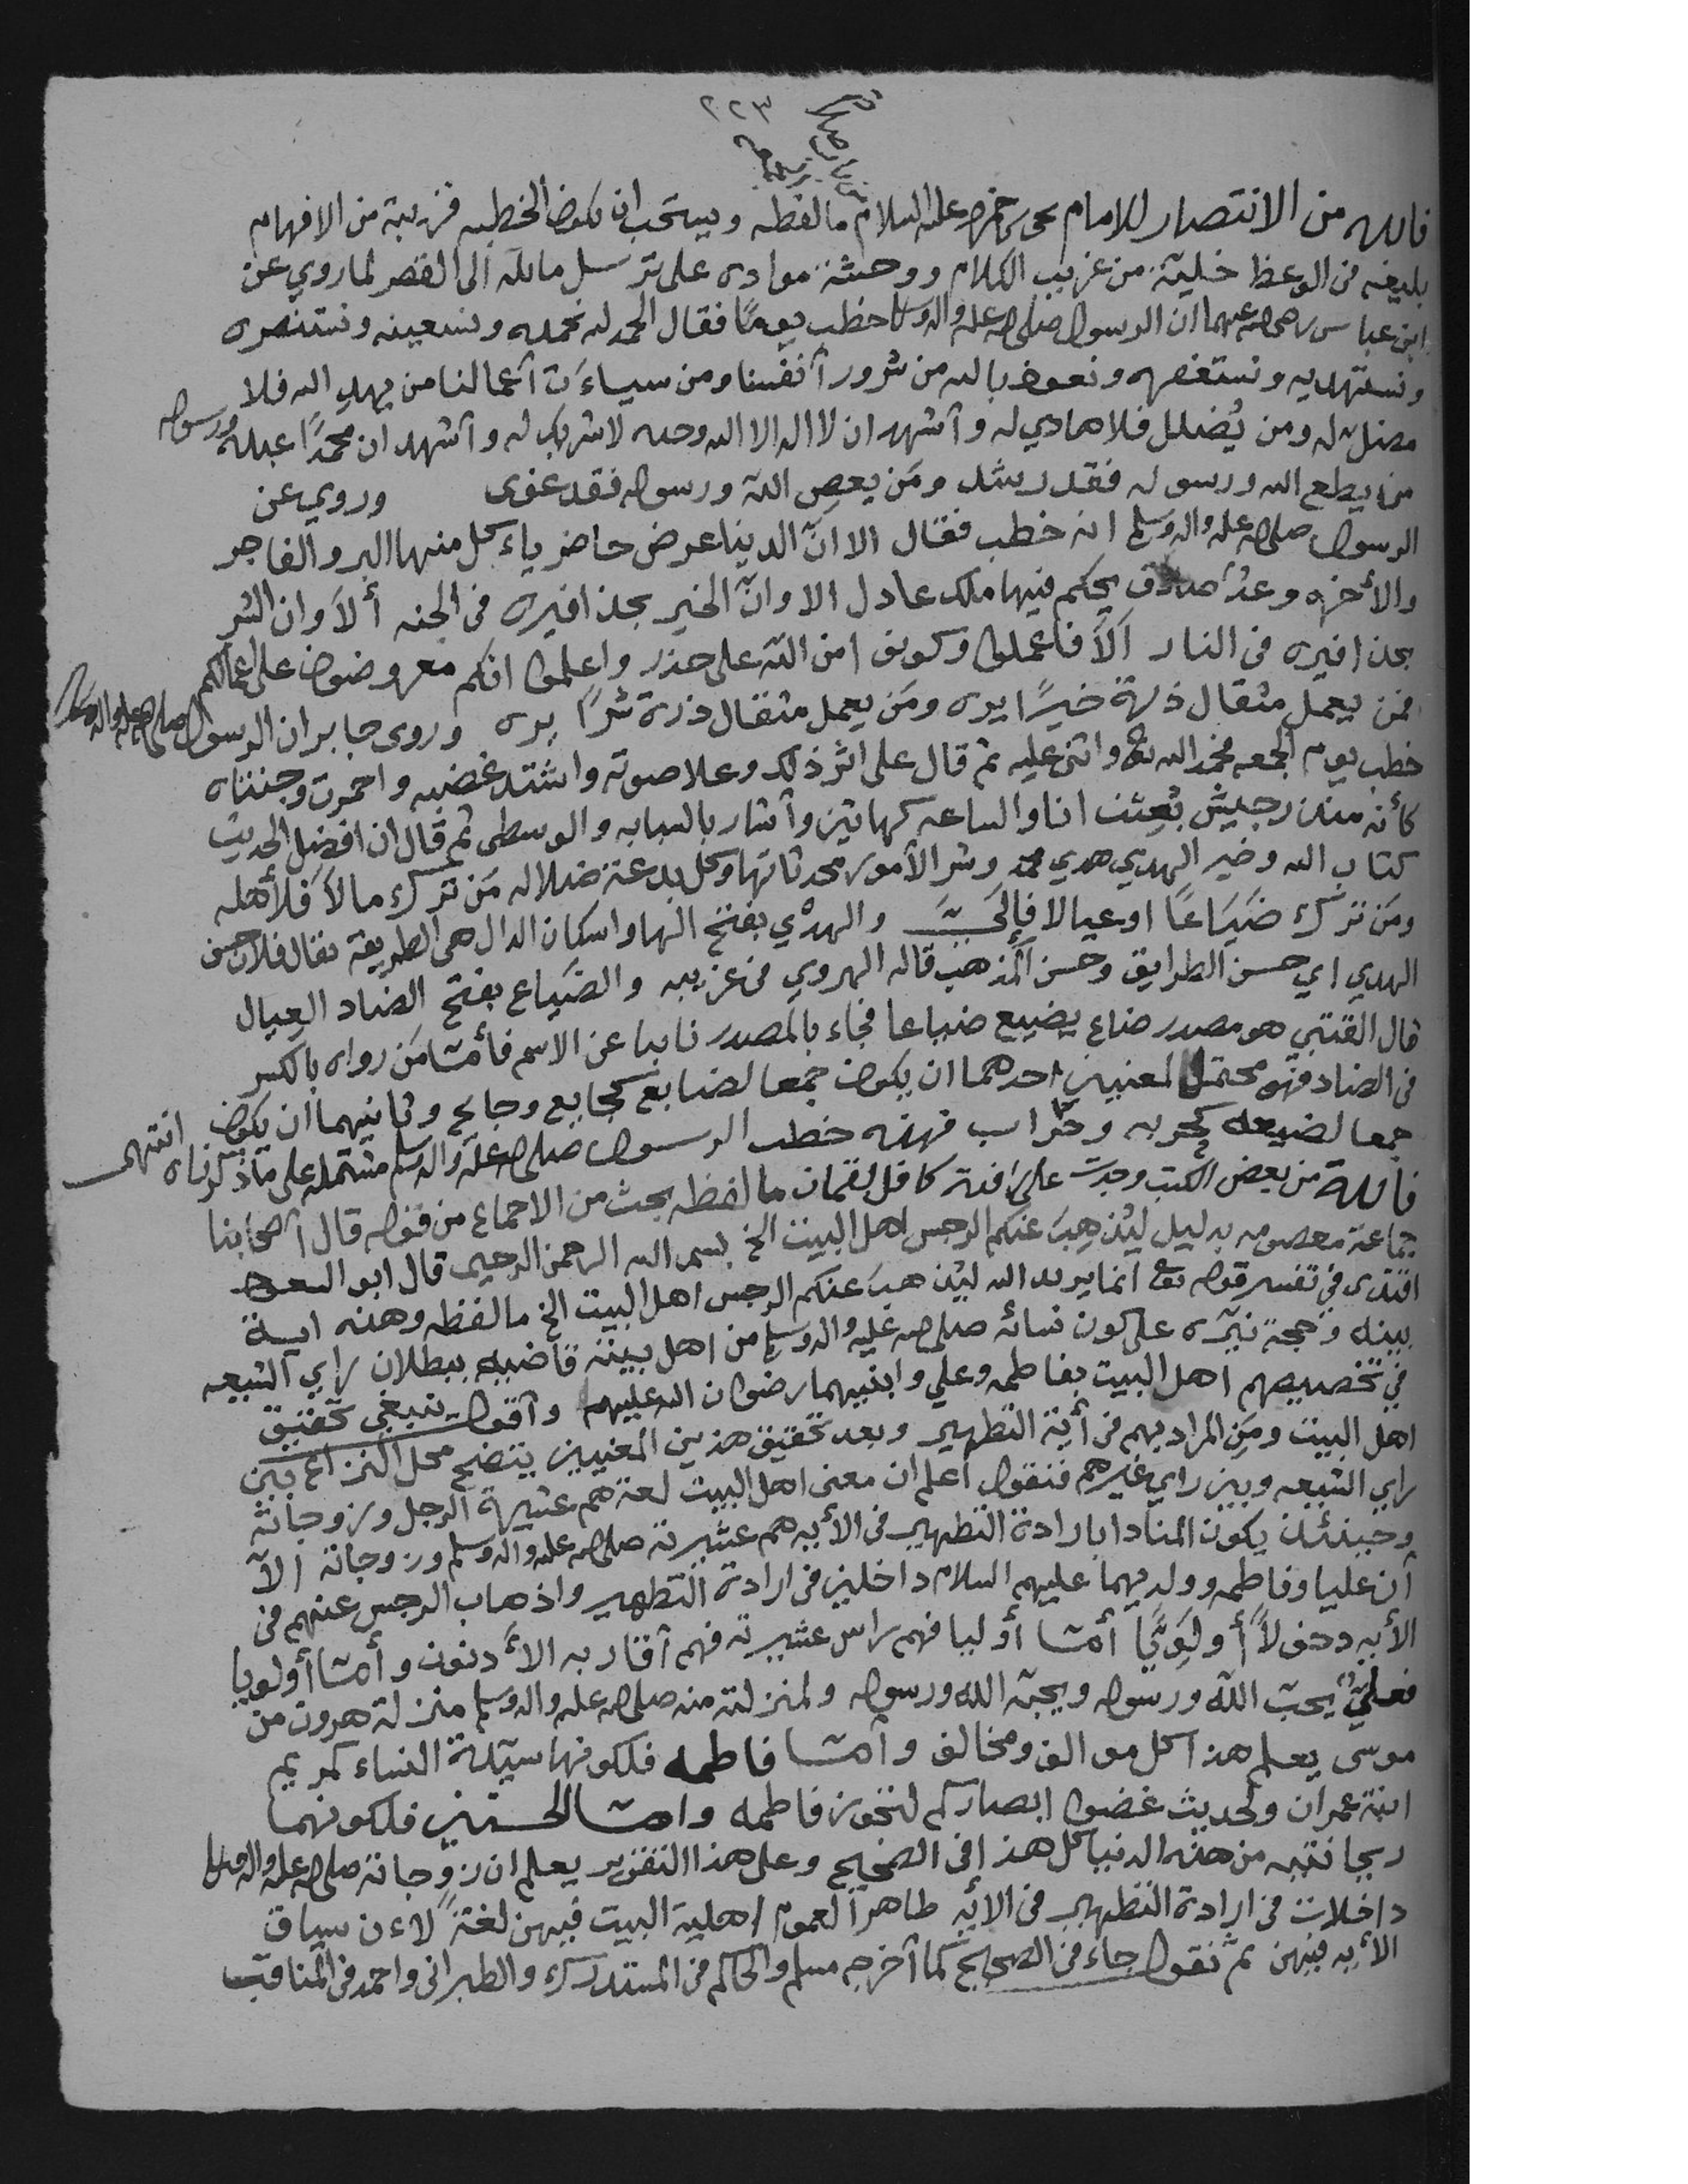 ٢٢٣
فائده من الانتصار للامام يحيى بن حمزه عليه السلام ما لفظه ويستحب ان يكون الخطيب قريبة من الافهام
بليغه في الوعظ خلية من غريب الكلام ووحشة موادى على ترسل مائلة الى القصر لما روي عن
ابن عباس رضي الله عنهما ان الرسول صلى الله عليه واله وسلم خطب يومًا فقال الحمد لله نحمده ونستعينه ونستنصره
ونستهديه ونستغفره ونعوذ بالله من شرور أنفسنا ومن سياءَت أعمالنا من يهدِ الله فلا
مضل له ومن يُضلل فلا هادي له وأشهد ان لا اله الا الله وحده لا شريك له وأشهد ان محمدًا عبده ورسوله
من يطع الله ورسوله فقد رشد ومَن يعصِ اللهَ ورسوله فقد غوى وروي عن
الرسول صلى الله عليه واله وسلم انه خطب فقال الا انّ الدينا عرض حاضر ياءكل منها البر والفاجر
والأخره وعدٌ صادق يحكم فيها ملك عادل الا وانّ الخير بحذافيره في الجنه ألاَ وان الشر
بحذافيره في النار ألاَ فاعملوا وكونوا من الله على حذر واعلموا انكم معروضون على اعمالكم
فمن يعمل مثقال ذرة خيرًا يره ومَن يعمل مثقال ذرة شرًا يره وروى جابر ان الرسول صلى الله عليه واله وسلم
خطب يوم الجمعه فحمد الله تعالى واثنى عليه ثم قال على اثر ذلك وعلا صوته واشتد غضبه واحمرت وجنتاه
كأنه منذر جيش بُعِثت انا والساعه كهاتين وأشار بالسبابه والوسطى ثم قال ان افضل الحديث
كتاب الله وخير الهدي هدي محمد وشر الأمور محدثاتها وكل بدعة ضلاله مَن ترك مالاً فلأهله
ومَن ترك ضَيَاعًا او عيالا فإليَّ والهدْي بفتح الها واسكان الدال هي الطريقة يقال فلان حسن
الهدي اي حسن الطرايق وحسن المذهب قاله الهروي في غريبه والضَياع بفتح الضاد العيال
قال القتبي هو مصدر ضاع يضيع ضياعا فجاء بالمصدر نايبا عن الاسم فأما مَن رواه بالكسر
في الضاد فهو محتمل لمعنيين احدهما ان يكون جمعا لضايع كجايع وجياع وثانيهما ان يكون
جمعا لضيعه كحربه وحراب فهذه خطب الرسول صلى الله عليه واله وسلم مشتمله على ما ذكرناه انتهى
فائدة من بعض الكتب وجدت على افدة كافل لقمان ما لفظه بحث من الاجماع من قوله قال أصحابنا
جماعة معصومه بدليل ليُذهِبَ عنكم الرجس اهل البيت الخ بسم الله الرحمن الرحيم قال ابو السعود
افندى في تفسير قوله تعالى انما يريد الله ليُذهبَ عنكم الرجس اهل البيت الخ ما لفظه وهذه اية
بينه وحجة نيّره على كون نسائه صلى الله عليه واله وسلم من اهل بيته قاضيه ببطلان رأي الشيعه
في تخصيصهم اهل البيت بفاطمه وعلي وابنيهما رضوان الله عليهم وأقول ينبغي تحقيق
اهل البيت ومَن المراد بهم في أية التطهير وبعد تحقيق هذين المعنيين يتضح محل النزاع بين
راي الشيعه وبين راي غيرهم فنقول اعلم ان معنى اهل البيت لغة هم عشيرة الرجل وزوجاته
وحينئذ يكون المنادا بارادة التطهير في الأيه هم عشيرته صلى الله عليه واله وسلم وزوجاته الاّ
أن عليا وفاطمه وولديهما عليهم السلام داخلين في ارادة التطهير واذهاب الرجس عنهم في
الأيه دخولاً أولوِيًّا أما أوليا فهم راس عشيرته فهم أقاربه الأدنون وأما أولويا
فعليٌّ يحب اللهَ ورسوله ويحبه الله ورسوله ولمنزلته منه صلى الله عليه واله وسلم منزلة هرون من
موسى يعلم هذا كل موالف ومخالف وأما فاطمه فلكونها سيدة النساء كمريم
ابنة عمران ولحديث غضوا ابصاركم لتجوز فاطمه واما الحسنين فلكونهما
ريحانتيه من هذه الدنيا كل هذا في الصحيح وعلى هذا التقرير يعلم ان زوجاته صلى الله عليه واله وسلم
داخلات في ارادة التطهير في الايه ظاهرًا لعموم اهلية البيت فيهن لغةً لاءن سياق
الأيه فيهن ثم نقول جاء في الصحيح كما أخرجه مسلم والحاكم في المستدرك والطبراني واحمد في المناقب